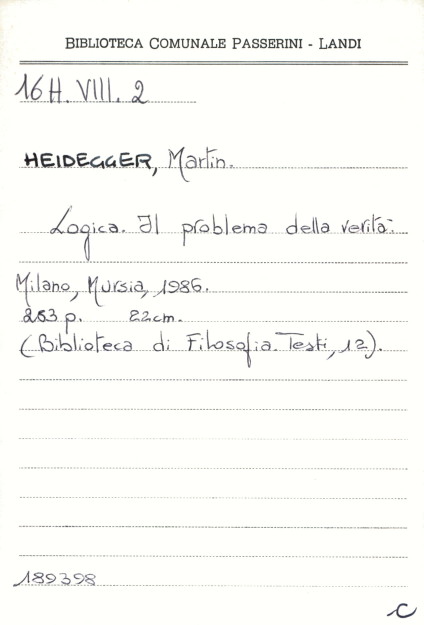 BIBLIOTECA COMUNALE PASSERINI - LANDI
16H. VIII. 2
HEIDEGGER, Martin.
Logica. Il problema della verità.
Milano, Mursia, 1986.
283 p. 22cm.
(Biblioteca di Filosofia. Testi, 12).
189398
C